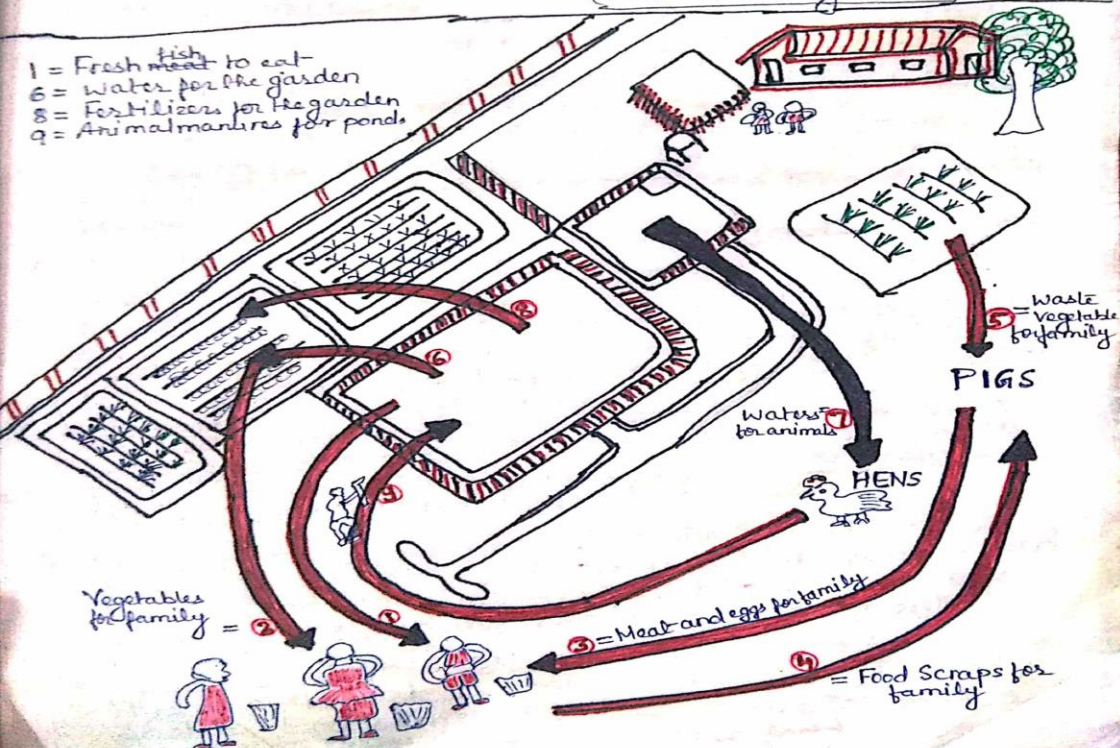 1 = Fresh fish to eat
6 = Water for the garden
8 = Fertilizers for the garden
9 = Animal manures for ponds
8
6
5 = Waste
Vegetable
for family
PIGS
Waters = 7
for animals
HENS
9
Vegetables
for family = 2
1
3 = Meat and eggs for family
4
= Food Scraps for
family